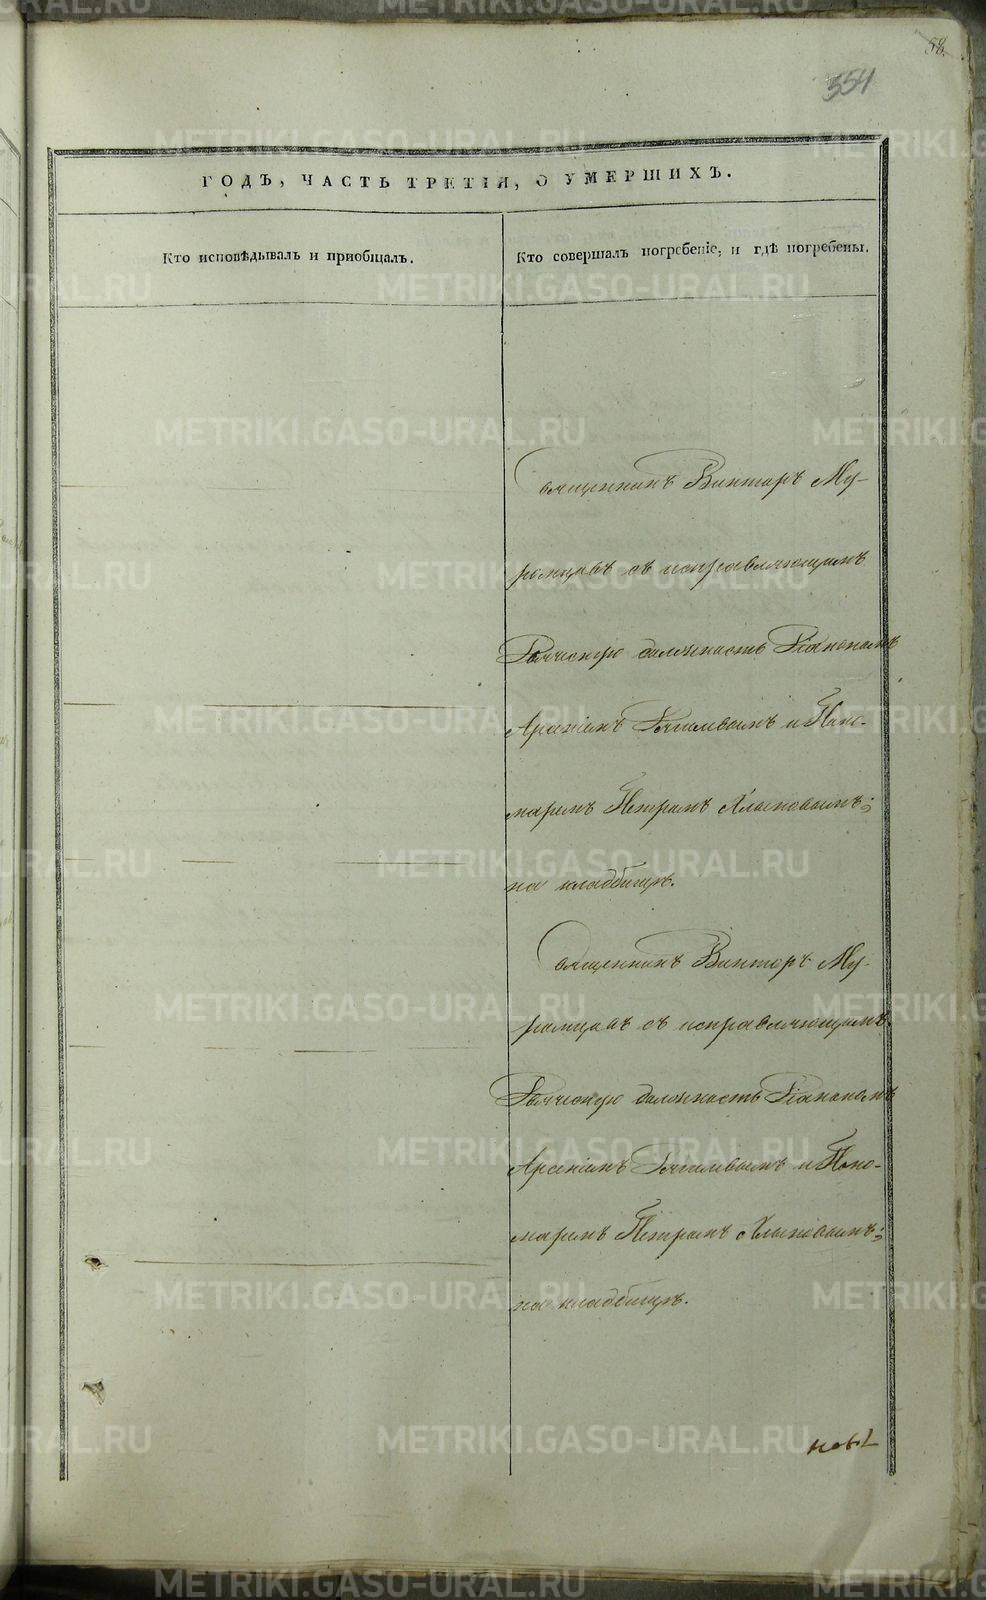 58.
354
ГОДЪ, ЧАСТЬ ТРЕТІЯ, О УМЕРШИХЪ.
Кто исповѣдывалъ и пріобщалъ.
Кто совершалъ погребеніе, и гдѣ погребены.
Священникъ Викторъ Му-
ромцовъ съ исправляющимъ
Дьяческую должность Діакономъ
Арсеніемъ и Поно-
маремъ Петромъ Хлыновымъ;
на кладбищѣ.
Священникъ Викторъ Му-
ромцовъ съ исправляющимъ
Дьяческую должность Діакономъ
Арсеніемъ и Поно-
маремъ Петромъ Хлыновымъ;
на кладбищѣ.
METRIKI.GASO-URAL.RU